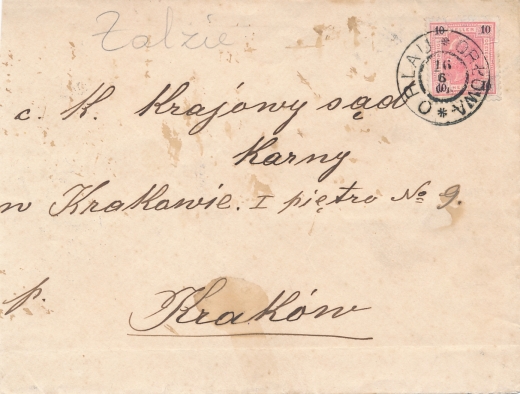 Zalzie
10 10
ORLAU * ORŁOWA *
16
6
00
c. k. Krajowy sąd
Karny
w Krakowie. I piętro № 9.
p. Kraków